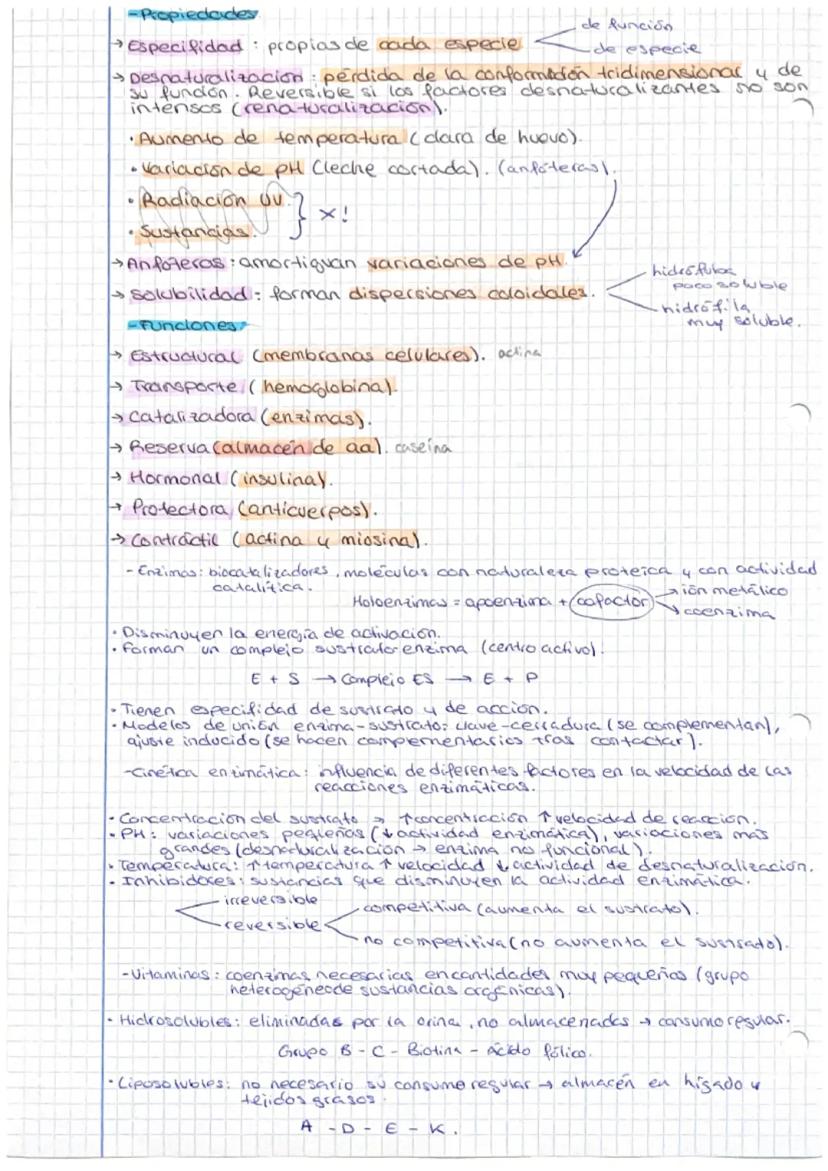 - Propiedades.
→ Especifidad : propias de cada especie
de función
de especie
→ Desnaturalización : pérdida de la conformación tridimensional y de
su función. Reversible si los factores desnaturalizantes no son
intensos (renaturalización).
· Aumento de temperatura (clara de huevo).
· Variación de pH (leche cortada). (anfóteras).
· Radiación UV.
· Sustancias. } x!
→ Anfóteros : amortiguan variaciones de pH.
→ Solubilidad : forman dispersiones coloidales.
hidrófuba
poco soluble
hidrófila
muy soluble.
- Funciones
→ Estructural (membranas celulares). actina
→ Transporte (hemoglobina).
→ Catalizadora (enzimas).
→ Reserva (almacén de aa). caseína
→ Hormonal (insulina).
→ Protectora (anticuerpos).
→ Contráctil (actina y miosina).
- Enzimas: biocatalizadores, moléculas con naturaleza proteica y con actividad
catalítica.
Holoenzimas = apoenzima + cofactor → ión metálico
→ coenzima
· Disminuyen la energía de activación.
· Forman un complejo sustrato-enzima (centro activo).
E + S → Complejo ES → E + P
· Tienen especifidad de sustrato y de acción.
· Modelos de unión enzima-sustrato: llave-cerradura (se complementan),
ajuste inducido (se hacen complementarios tras contactar).
- Cinética enzimática: influencia de diferentes factores en la velocidad de las
reacciones enzimáticas.
· Concentración del sustrato → ↑concentración ↑velocidad de reacción.
· PH: variaciones pequeñas (↓actividad enzimática), variaciones más
grandes (desnaturalización → enzima no funcional).
· Temperatura: ↑temperatura ↑ velocidad ↓actividad de desnaturalización.
· Inhibidores: sustancias que disminuyen la actividad enzimática.
- irreversible
- reversible
- competitiva (aumenta el sustrato).
- no competitiva (no aumenta el sustrato).
- Vitaminas: coenzimas necesarias en cantidades muy pequeñas (grupo
heterogéneo de sustancias orgánicas).
· Hidrosolubles: eliminadas por la orina, no almacenadas → consumo regular.
Grupo B - C - Biotina - ácido fólico.
· Liposolubles: no necesario su consumo regular → almacén en hígado y
tejidos grasos.
A - D - E - K.